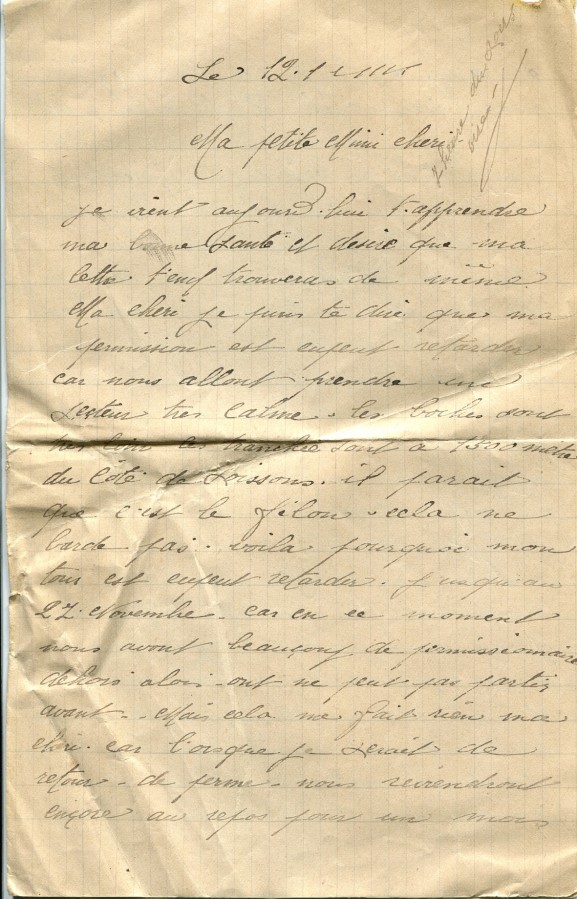 Le 12.
Ma petite Mimi cheri
je vient aujourd'hui t'apprendre
ma bonne Santé et désire que ma
lettre t'enf trouveras de même.
Ma cheri je puis te dire que ma
permission est enfent retarder
car nous allont prendre un
Secteur tres Calme. les boches sont
tres loin les tranchée sont a 1500 metre
du Coté de Soissons. il parait
que c'est le filon. cela ne
barde pas. voila pourquoi mon
tour est enfent retarder. jusqu'au
27. Novembre. car en ce moment
nous avont beaucoup de permissionaire
dehors alors. ont ne peut pas partir
avant. Mais cela ne fait rien ma
cheri. car l'orsque je Serait de
retour. de perme. nous reviendront
encore au repos pour un mois